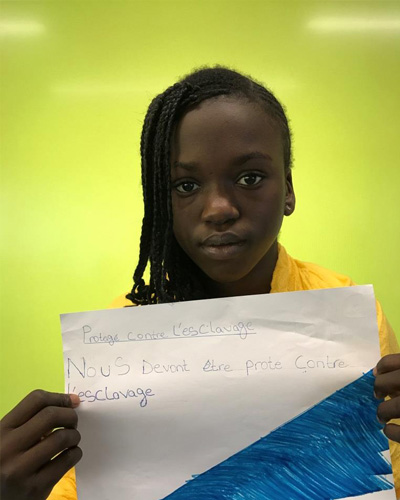 Protege contre l'esclavage
Nous Devont être prote Contre
l'esclavage